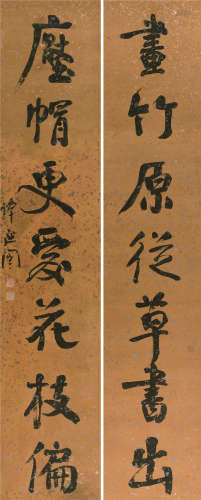 畫竹原從草書出
壓帽更愛花枝偏
譚延闓